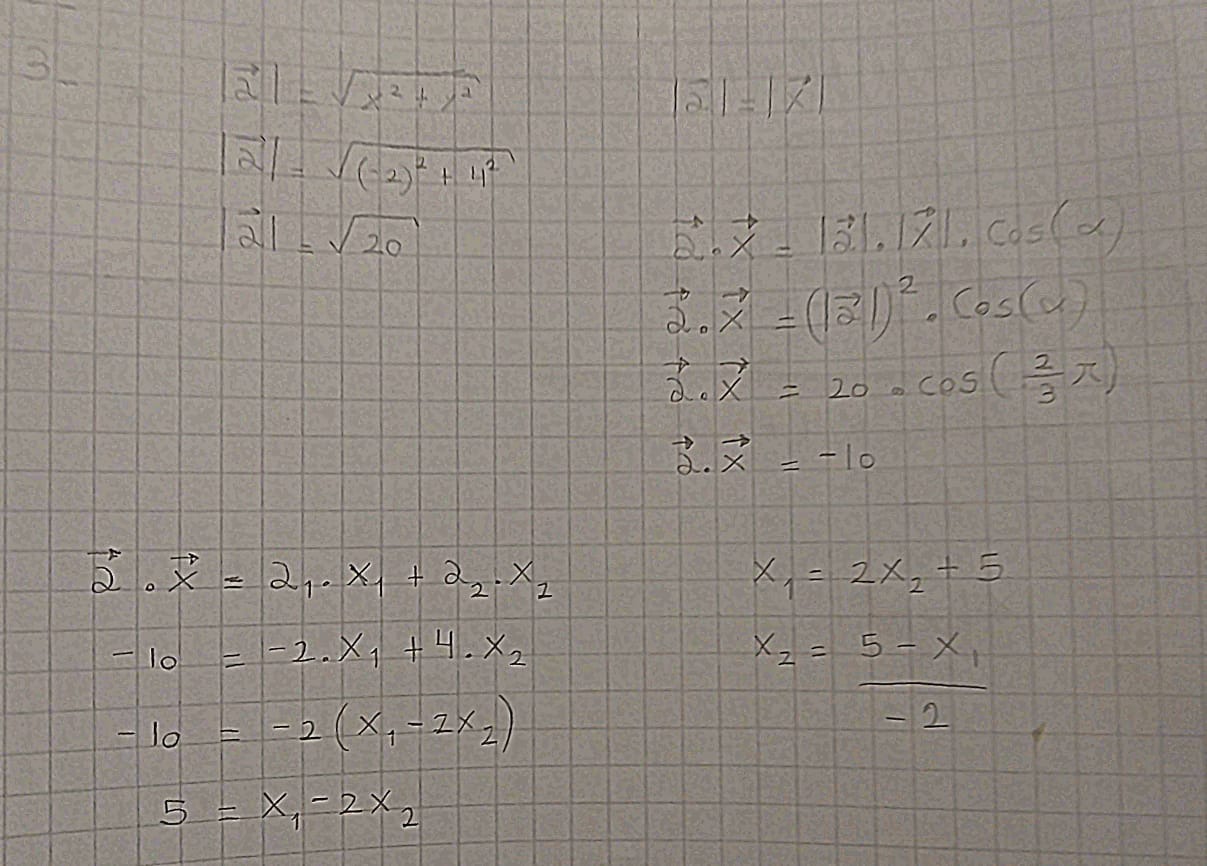 3-
|a⃗| = √(x² + y²)
|a⃗| = √((-2)² + 4²)
|a⃗| = √20
|a⃗| = |x⃗|
a⃗ . x⃗ = |a⃗| . |x⃗| . cos(α)
a⃗ . x⃗ = (|a⃗|)² . cos(α)
a⃗ . x⃗ = 20 . cos(2/3 π)
a⃗ . x⃗ = -10
a⃗ . x⃗ = a₁ . x₁ + a₂ . x₂
-10 = -2 . x₁ + 4 . x₂
-10 = -2(x₁ - 2x₂)
5 = x₁ - 2x₂
x₁ = 2x₂ + 5
x₂ = (5 - x₁)/(-2)